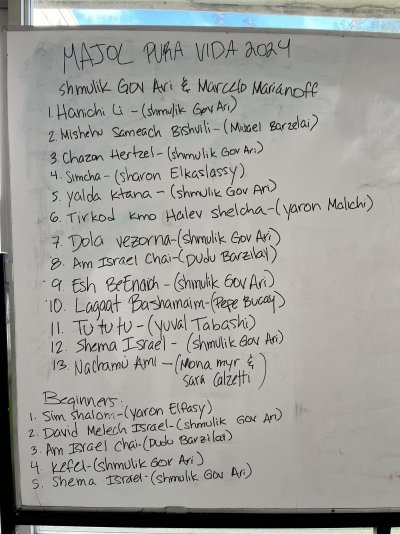 MAJOL PURA VIDA 2024
Shmulik Gov Ari & Marcelo Marianoff
1. Hanichi Li - (Shmulik Gov Ari)
2. Mishehu Sameach Bishvili - (Michael Barzelai)
3. Chazon Hertzel - (Shmulik Gov Ari)
4. Simcha - (Sharon Elkaslassy)
5. Yalda Ktana - (Shmulik Gov Ari)
6. Tirkod Kmo Halev Shelcha - (Yaron Malichi)
7. Dola Vezorna - (Shmulik Gov Ari)
8. Am Israel Chai - (Dudu Barzilay)
9. Esh BeEnaich - (Shmulik Gov Ari)
10. Lagaat Bashamaim - (Pepe Bucay)
11. Tu tu tu - (Yuval Tabashi)
12. Shema Israel - (Shmulik Gov Ari)
13. Nachamu Ami - (Mona myr &
Sara Calzetti)
Beginners:
1. Sim Shalom - (Yaron Elfasy)
2. David Melech Israel - (Shmulik Gov Ari)
3. Am Israel Chai - (Dudu Barzilai)
4. Kefel - (Shmulik Gov Ari)
5. Shema Israel - (Shmulik Gov Ari)